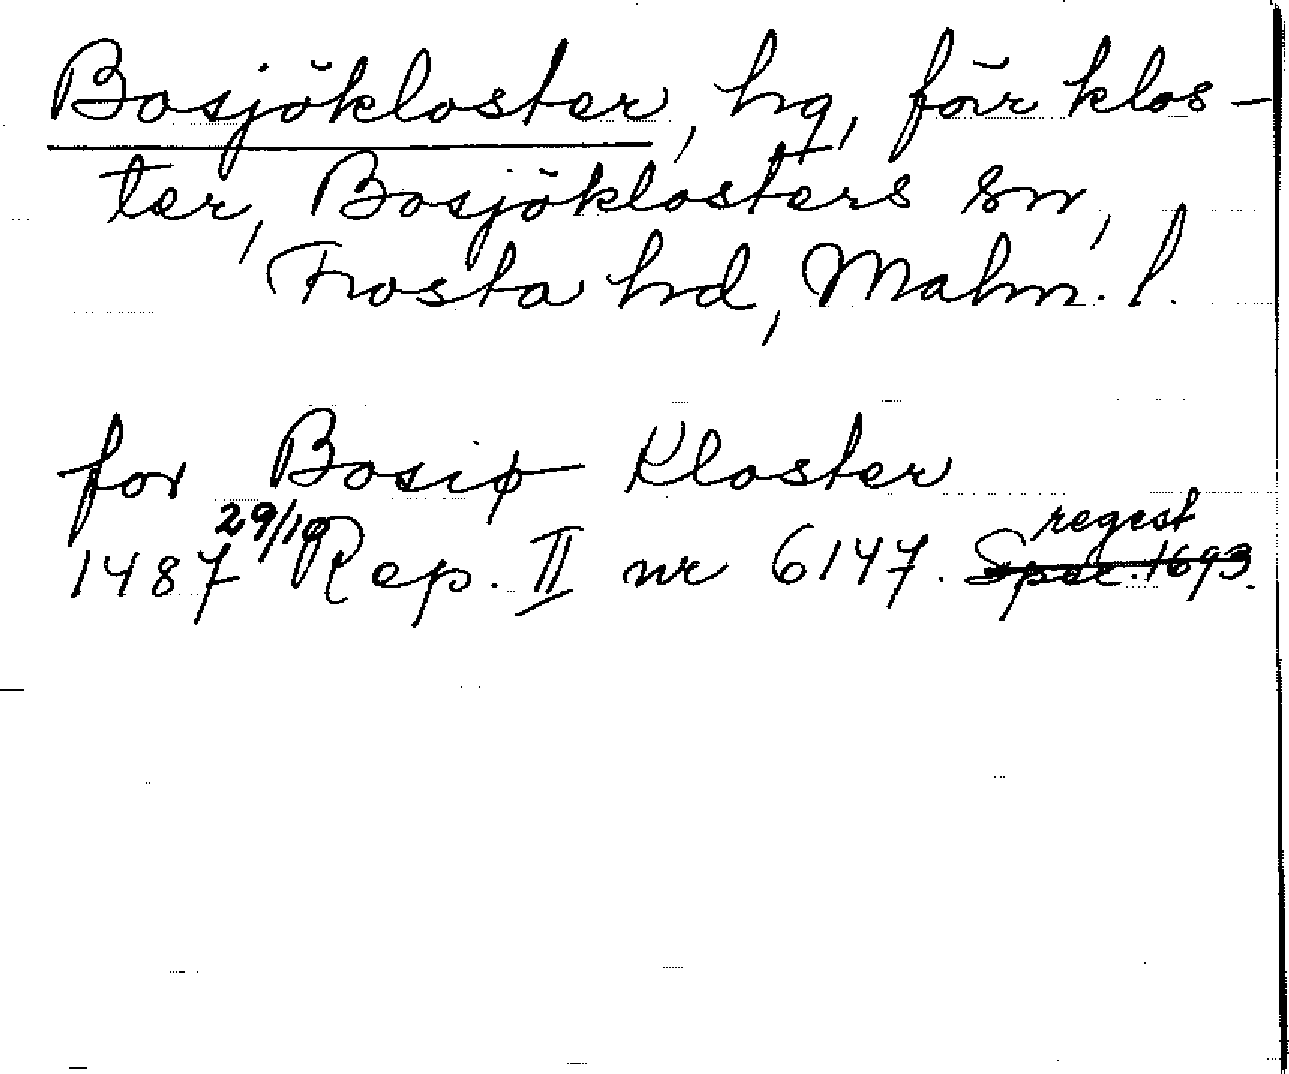 Bosjökloster, hg, förr klos-
ter, Bosjöklosters sn,
Frosta hd, Malm. l.
for Bosiø Kloster
29/10 regest
1487 Rep. II nr 6147. Spec. 1693.